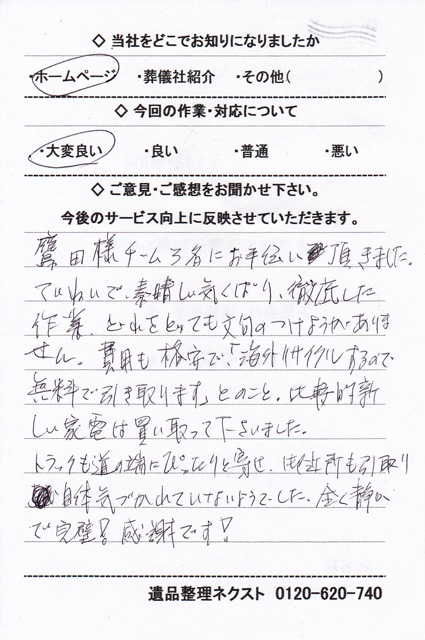 ◇ 当社をどこでお知りになりましたか
・ホームページ ・葬儀社紹介 ・その他( )
◇ 今回の作業・対応について
・大変良い ・良い ・普通 ・悪い
◇ ご意見・ご感想をお聞かせ下さい。
今後のサービス向上に反映させていただきます。
鷹田様チーム3名にお手伝い頂きました。
ていねいで、素晴しい気くばり、徹底した
作業、どれをとっても文句のつけようがありま
せん。費用も格安で、「海外リサイクルするので
無料で引き取ります」とのこと。比較的新
しい家電は買い取って下さいました。
トラックも道の端にぴったりと寄せ、御近所も引取り
自体気づかれていないようでした。全く静か
で完璧!感謝です!
遺品整理ネクスト 0120-620-740